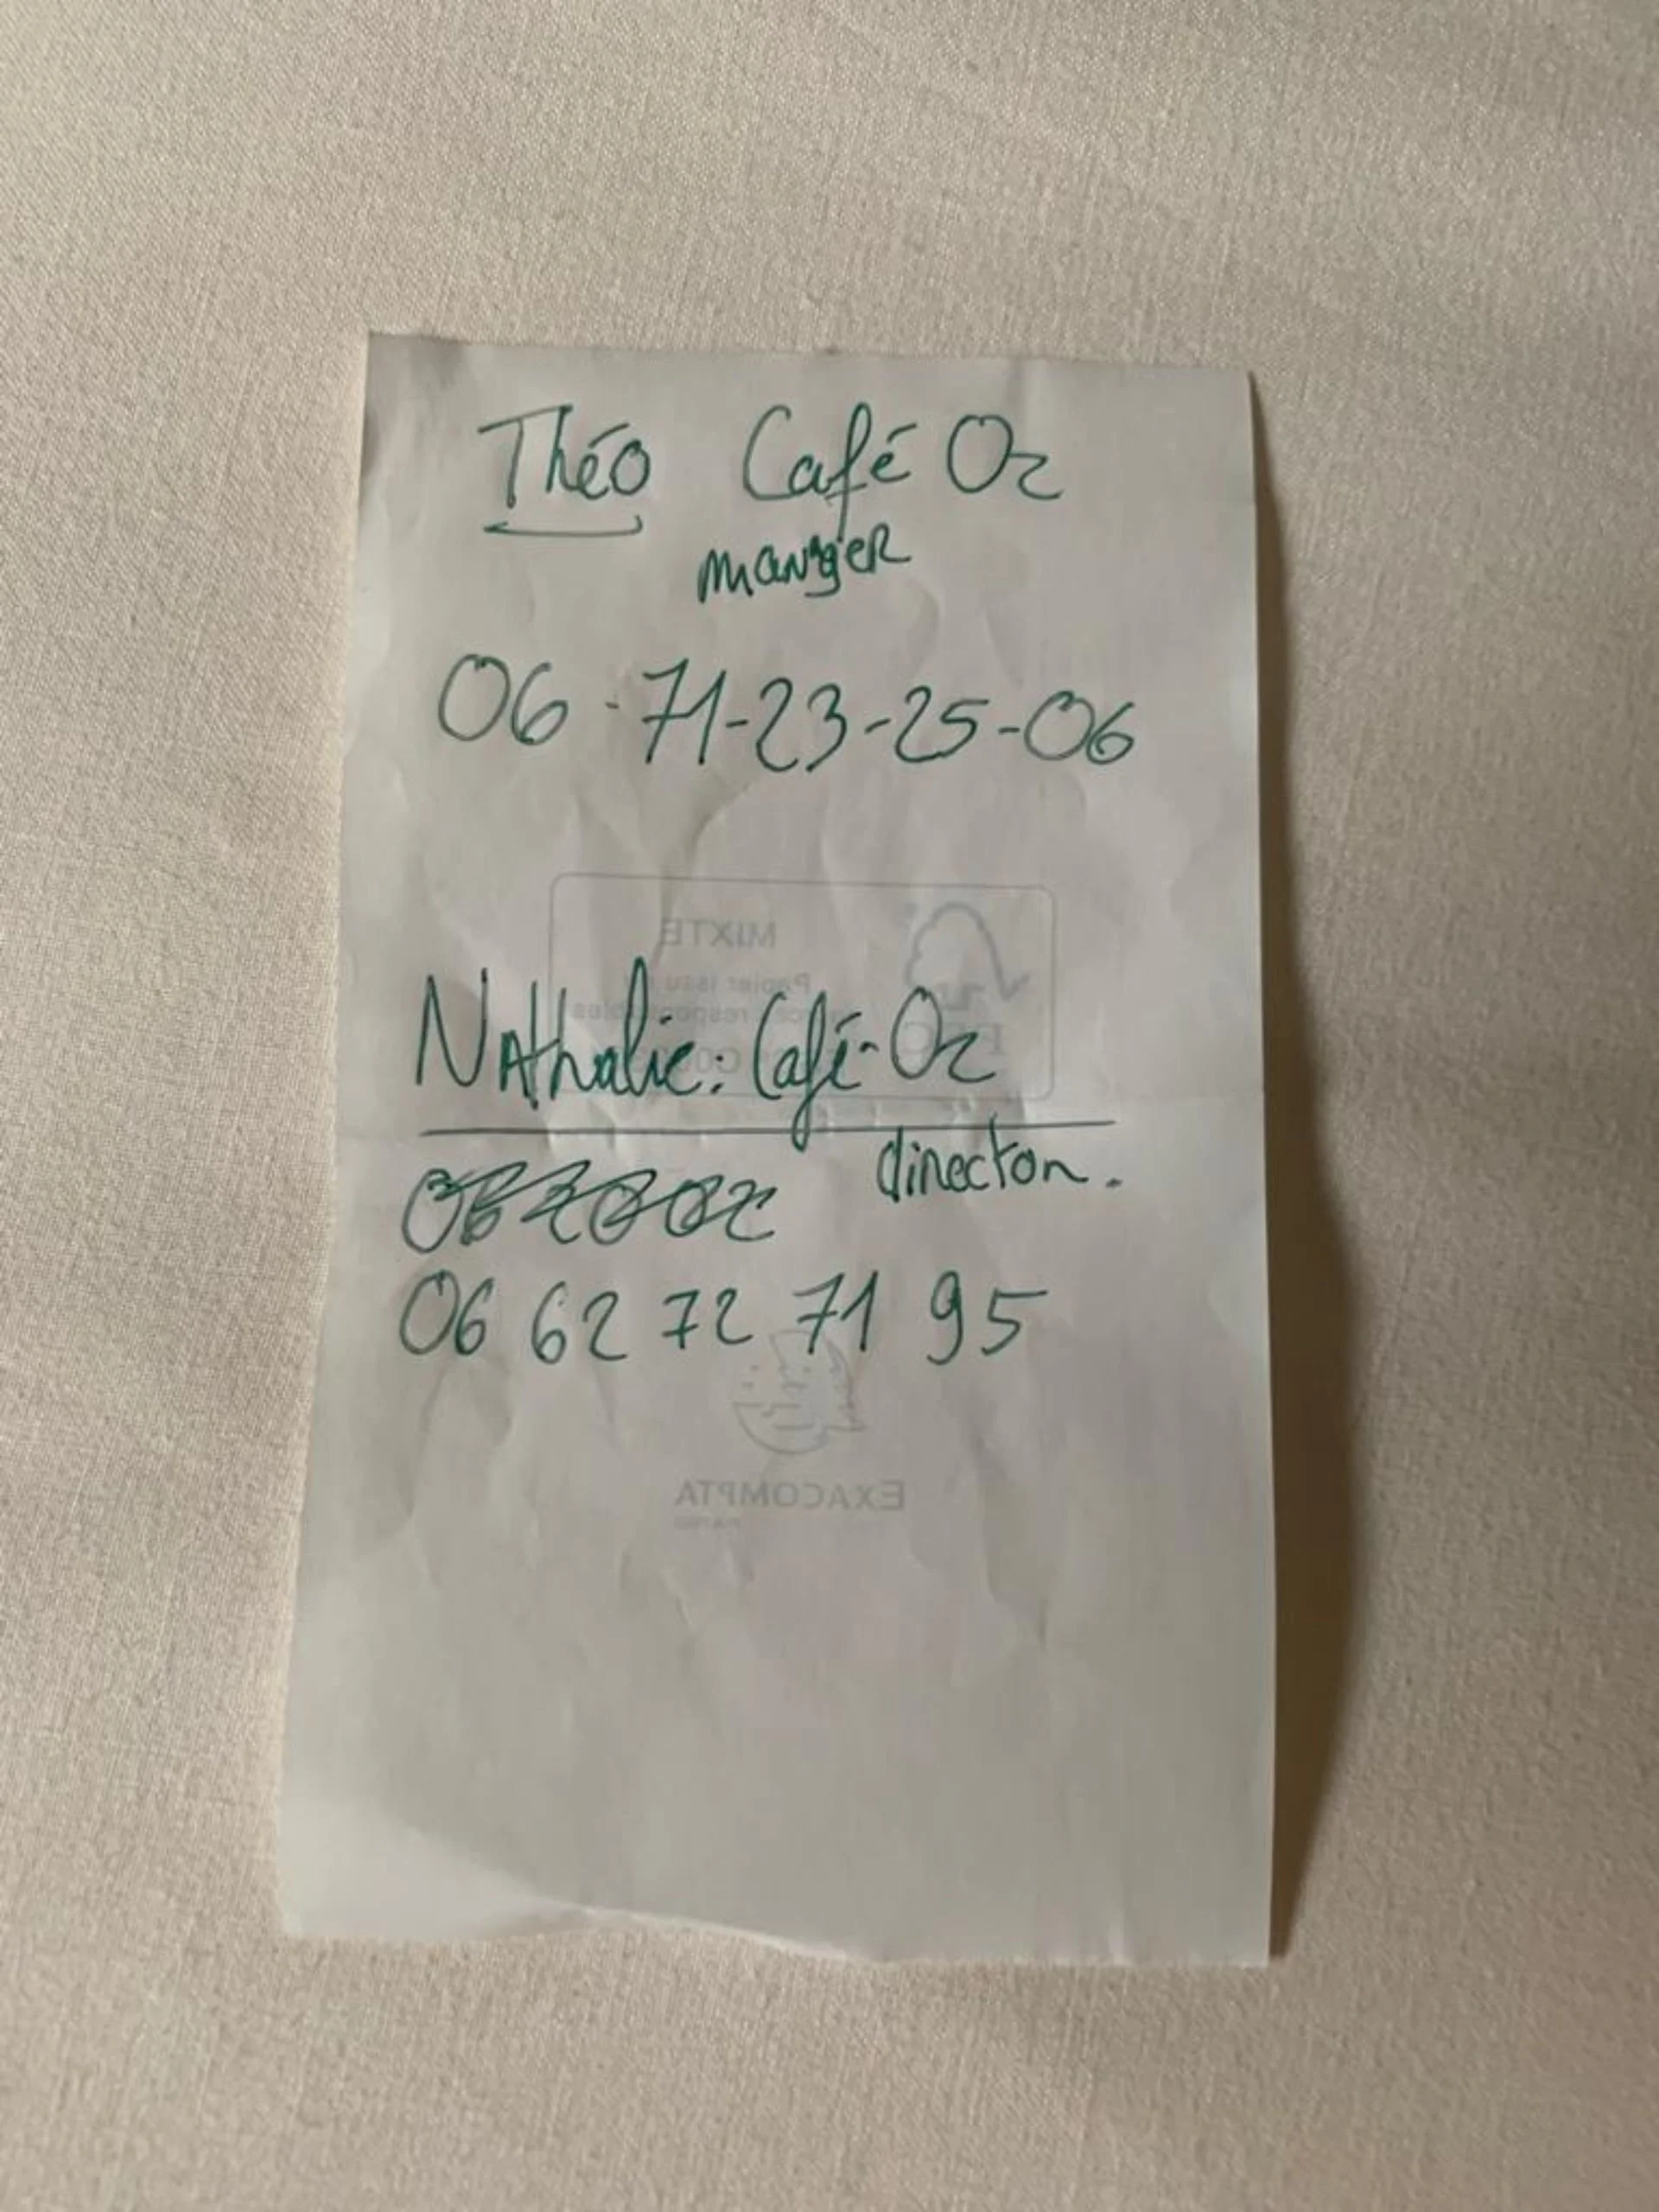 Théo Café Oz
manager
06-71-23-25-06
Nathalie: Café-Oz
directon.
06 62 72 71 95
MIXTE
Papier issu
responsables
EXACOMPTA
PARIS